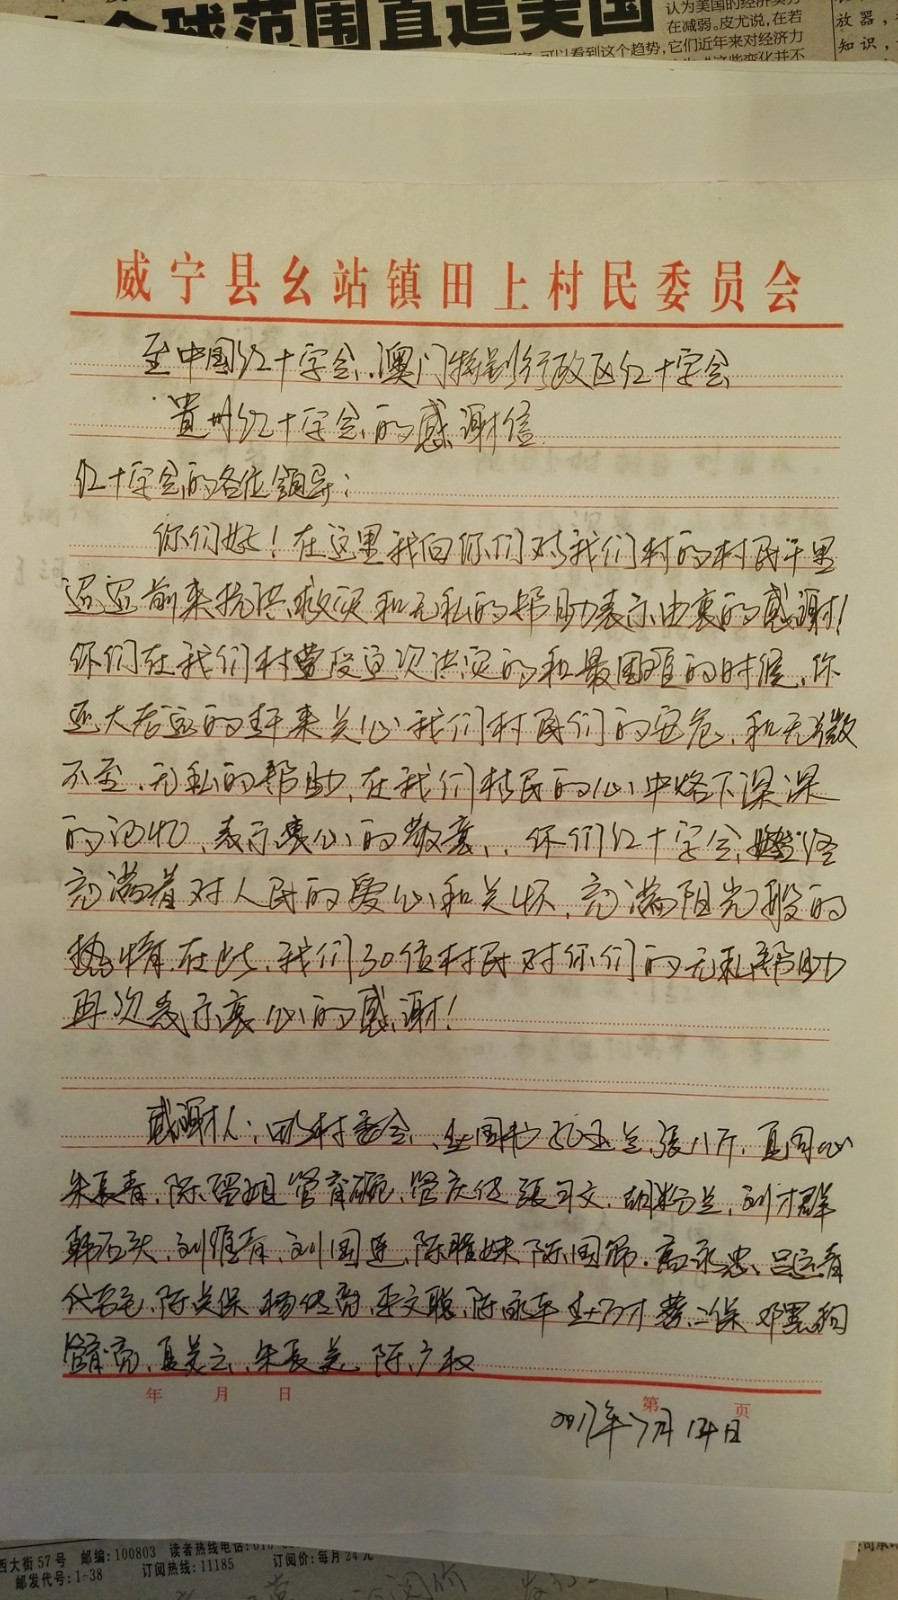 全球范围直追美国
认为美国的经济
在减弱。皮尤说，在若
可以看到这个趋势，它们近年来对经济力
放器，
知识，
威宁县幺站镇田上村民委员会
至中国红十字会、澳门特别行政区红十字会
贵州红十字会的感谢信
红十字会的各位领导：
你们好！在这里我向你们对我们村的村民千里
迢迢前来抗洪救灾和无私的帮助表示由衷的感谢！
你们在我们村遭受这次洪灾的和最困难的时候，你
大老远的赶来关心我们村民们的安危，和无微
不至、无私的帮助，在我们村民的心中烙下深深
的记忆、表示衷心的敬意，你们红十字会
充满着对人民的爱心和关怀，充满阳光般的
热情，在此，我们30位村民对你们的无私帮助
再次表示衷心的感谢！
感谢人：田上村委会、孔玉兰、张八斤、夏同心
朱长青、陈 姐、管 、管庆 、张习文、胡粉兰、刘才群
韩石头、刘维有、刘国连、陈 妹、陈国 、高永忠、吕运有
代石毛、陈 保、杨 、李文聪、陈永平、 、蔡二保、邓黑狗
管 亮、夏美云、朱长美、陈广权
年 月 日 第 页
2017年7月14日
西大街57号 邮编：100803 读者热线电话：010
邮发代号：1-38 订阅热线：11185 订阅价：每月24元